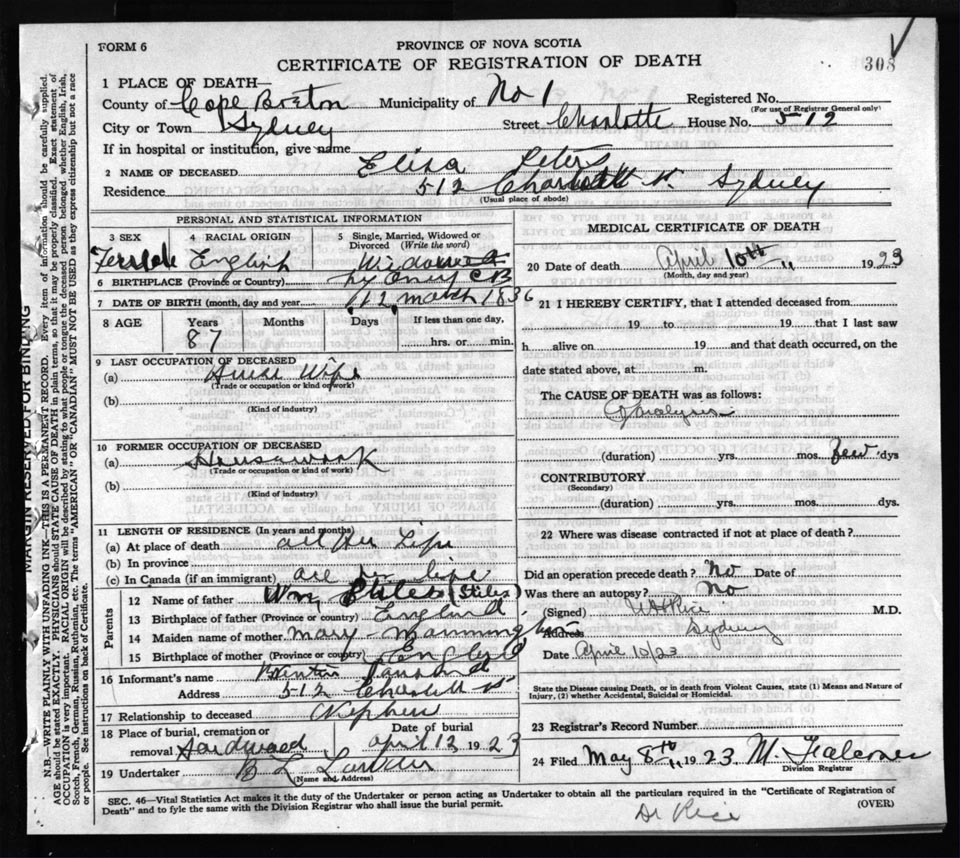 FORM 6
PROVINCE OF NOVA SCOTIA
CERTIFICATE OF REGISTRATION OF DEATH
308
MARGIN RESERVED FOR BINDING
N.B.—WRITE PLAINLY WITH UNFADING INK—THIS IS A PERMANENT RECORD. Every item of information should be carefully supplied.
AGE should be stated EXACTLY. PHYSICIANS should STATE CAUSE OF DEATH in plain terms, so that it may be properly classified. Exact statement of
OCCUPATION is very important. RACIAL ORIGIN will be described by stating to what people or tongue the deceased person belonged whether English, Irish,
Scotch, French, German, Russian, Ruthenian, etc. The terms "AMERICAN" OR "CANADIAN" MUST NOT BE USED as they express citizenship but not a race
or people. See instructions on back of Certificate.
1 PLACE OF DEATH—
County of Cape Breton Municipality of No 1 Registered No.
(For use of Registrar General only)
City or Town Sydney Street Charlotte House No. 512
If in hospital or institution, give name
2 NAME OF DECEASED Eliza Peters
Residence 512 Charlotte St. Sydney
(Usual place of abode)
PERSONAL AND STATISTICAL INFORMATION
3 SEX 4 RACIAL ORIGIN 5 Single, Married, Widowed or
Divorced (Write the word)
Female English Widowed
6 BIRTHPLACE (Province or Country) C B
7 DATE OF BIRTH (month, day and year) 12 March 1836
8 AGE Years Months Days If less than one day,
87 hrs. or min.
9 LAST OCCUPATION OF DECEASED
(a) House Wife
(Trade or occupation or kind of work)
(b)
(Kind of industry)
10 FORMER OCCUPATION OF DECEASED
(a) Housework
(Trade or occupation or kind of work)
(b)
(Kind of industry)
11 LENGTH OF RESIDENCE (In years and months)
(a) At place of death all her Life
(b) In province
(c) In Canada (if an immigrant) all her life
Parents
12 Name of father Wm (Stiles)
13 Birthplace of father (Province or country) England
14 Maiden name of mother Mary
15 Birthplace of mother (Province or country) England
16 Informant's name
Address 512 Charlotte St
17 Relationship to deceased Nephew
18 Place of burial, cremation or Date of burial
removal Hardwood april 12 1923
19 Undertaker B L
(Name and Address)
MEDICAL CERTIFICATE OF DEATH
20 Date of death April 10th 1923
(Month, day and year)
21 I HEREBY CERTIFY, that I attended deceased from
19 to 19 that I last saw
h alive on 19 and that death occurred, on the
date stated above, at m.
The CAUSE OF DEATH was as follows:
Paralysis
(duration) yrs. mos. few dys
CONTRIBUTORY
(Secondary)
(duration) yrs. mos. dys.
22 Where was disease contracted if not at place of death?
Did an operation precede death? No Date of
Was there an autopsy? No
(Signed) Rice M.D.
Address Sydney
Date April 10/23
State the Disease causing Death, or in death from Violent Causes, state (1) Means and Nature of
Injury, (2) whether Accidental, Suicidal or Homicidal.
23 Registrar's Record Number
24 Filed May 8th 1923 M Falconer
Division Registrar
SEC. 46—Vital Statistics Act makes it the duty of the Undertaker or person acting as Undertaker to obtain all the particulars required in the "Certificate of Registration of
Death" and to fyle the same with the Division Registrar who shall issue the burial permit.
(OVER)
Dr Rice